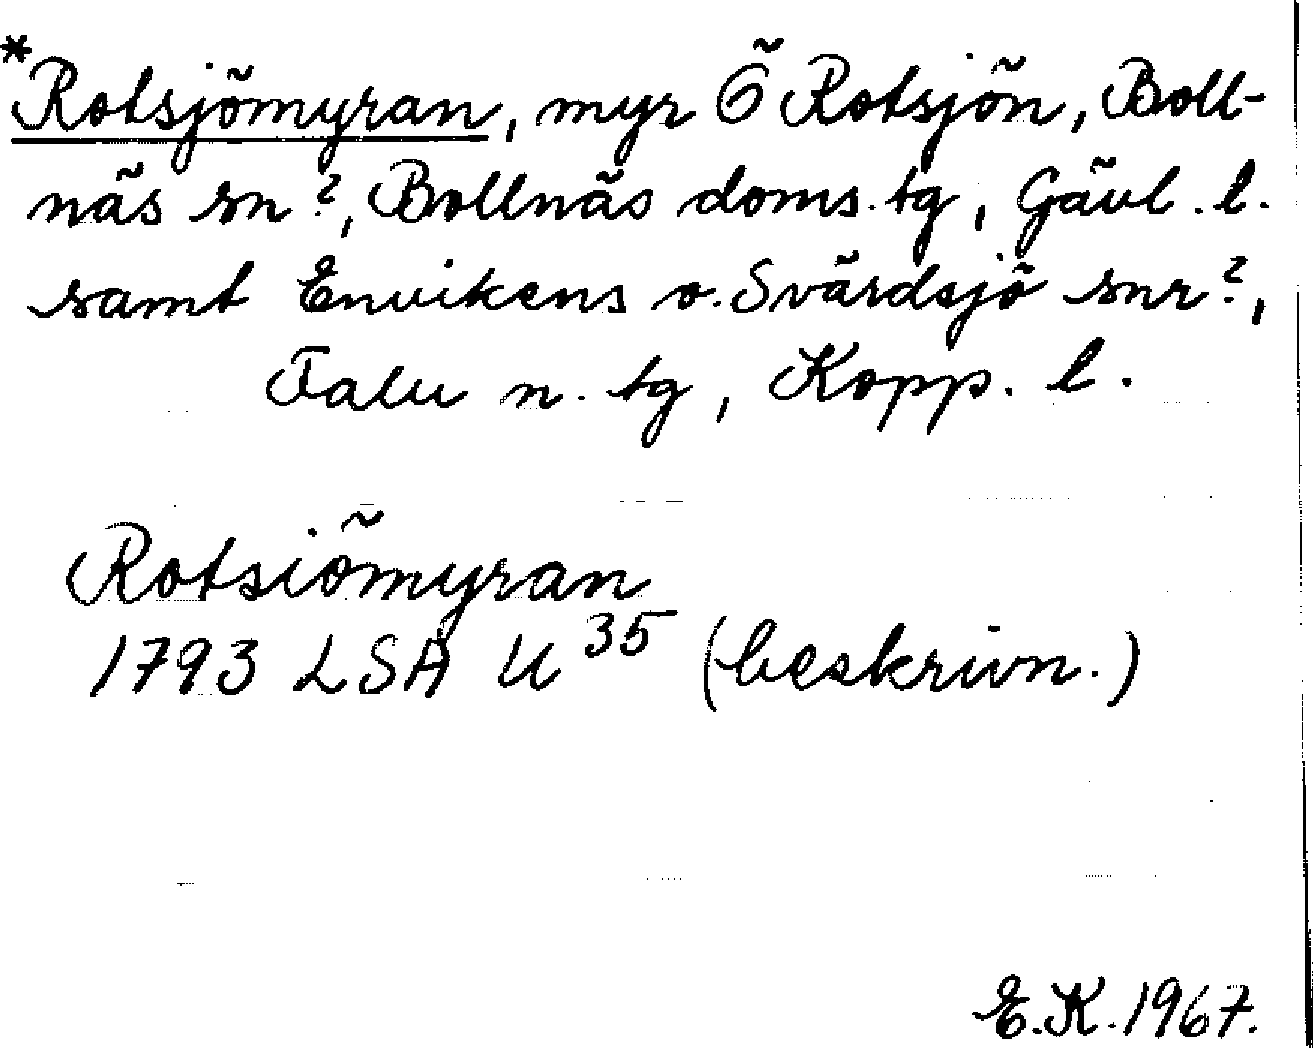 *Rotsjömyran, myr Ö Rotsjön, Boll-
näs sn?, Bollnäs doms.tg, Gävl. l.
samt Envikens o. Svärdsjö snr?,
Falu n. tg, Kopp. l.
Rotsiömyran
1793 LSA U 35 (beskrivn.)
E.K. 1967.